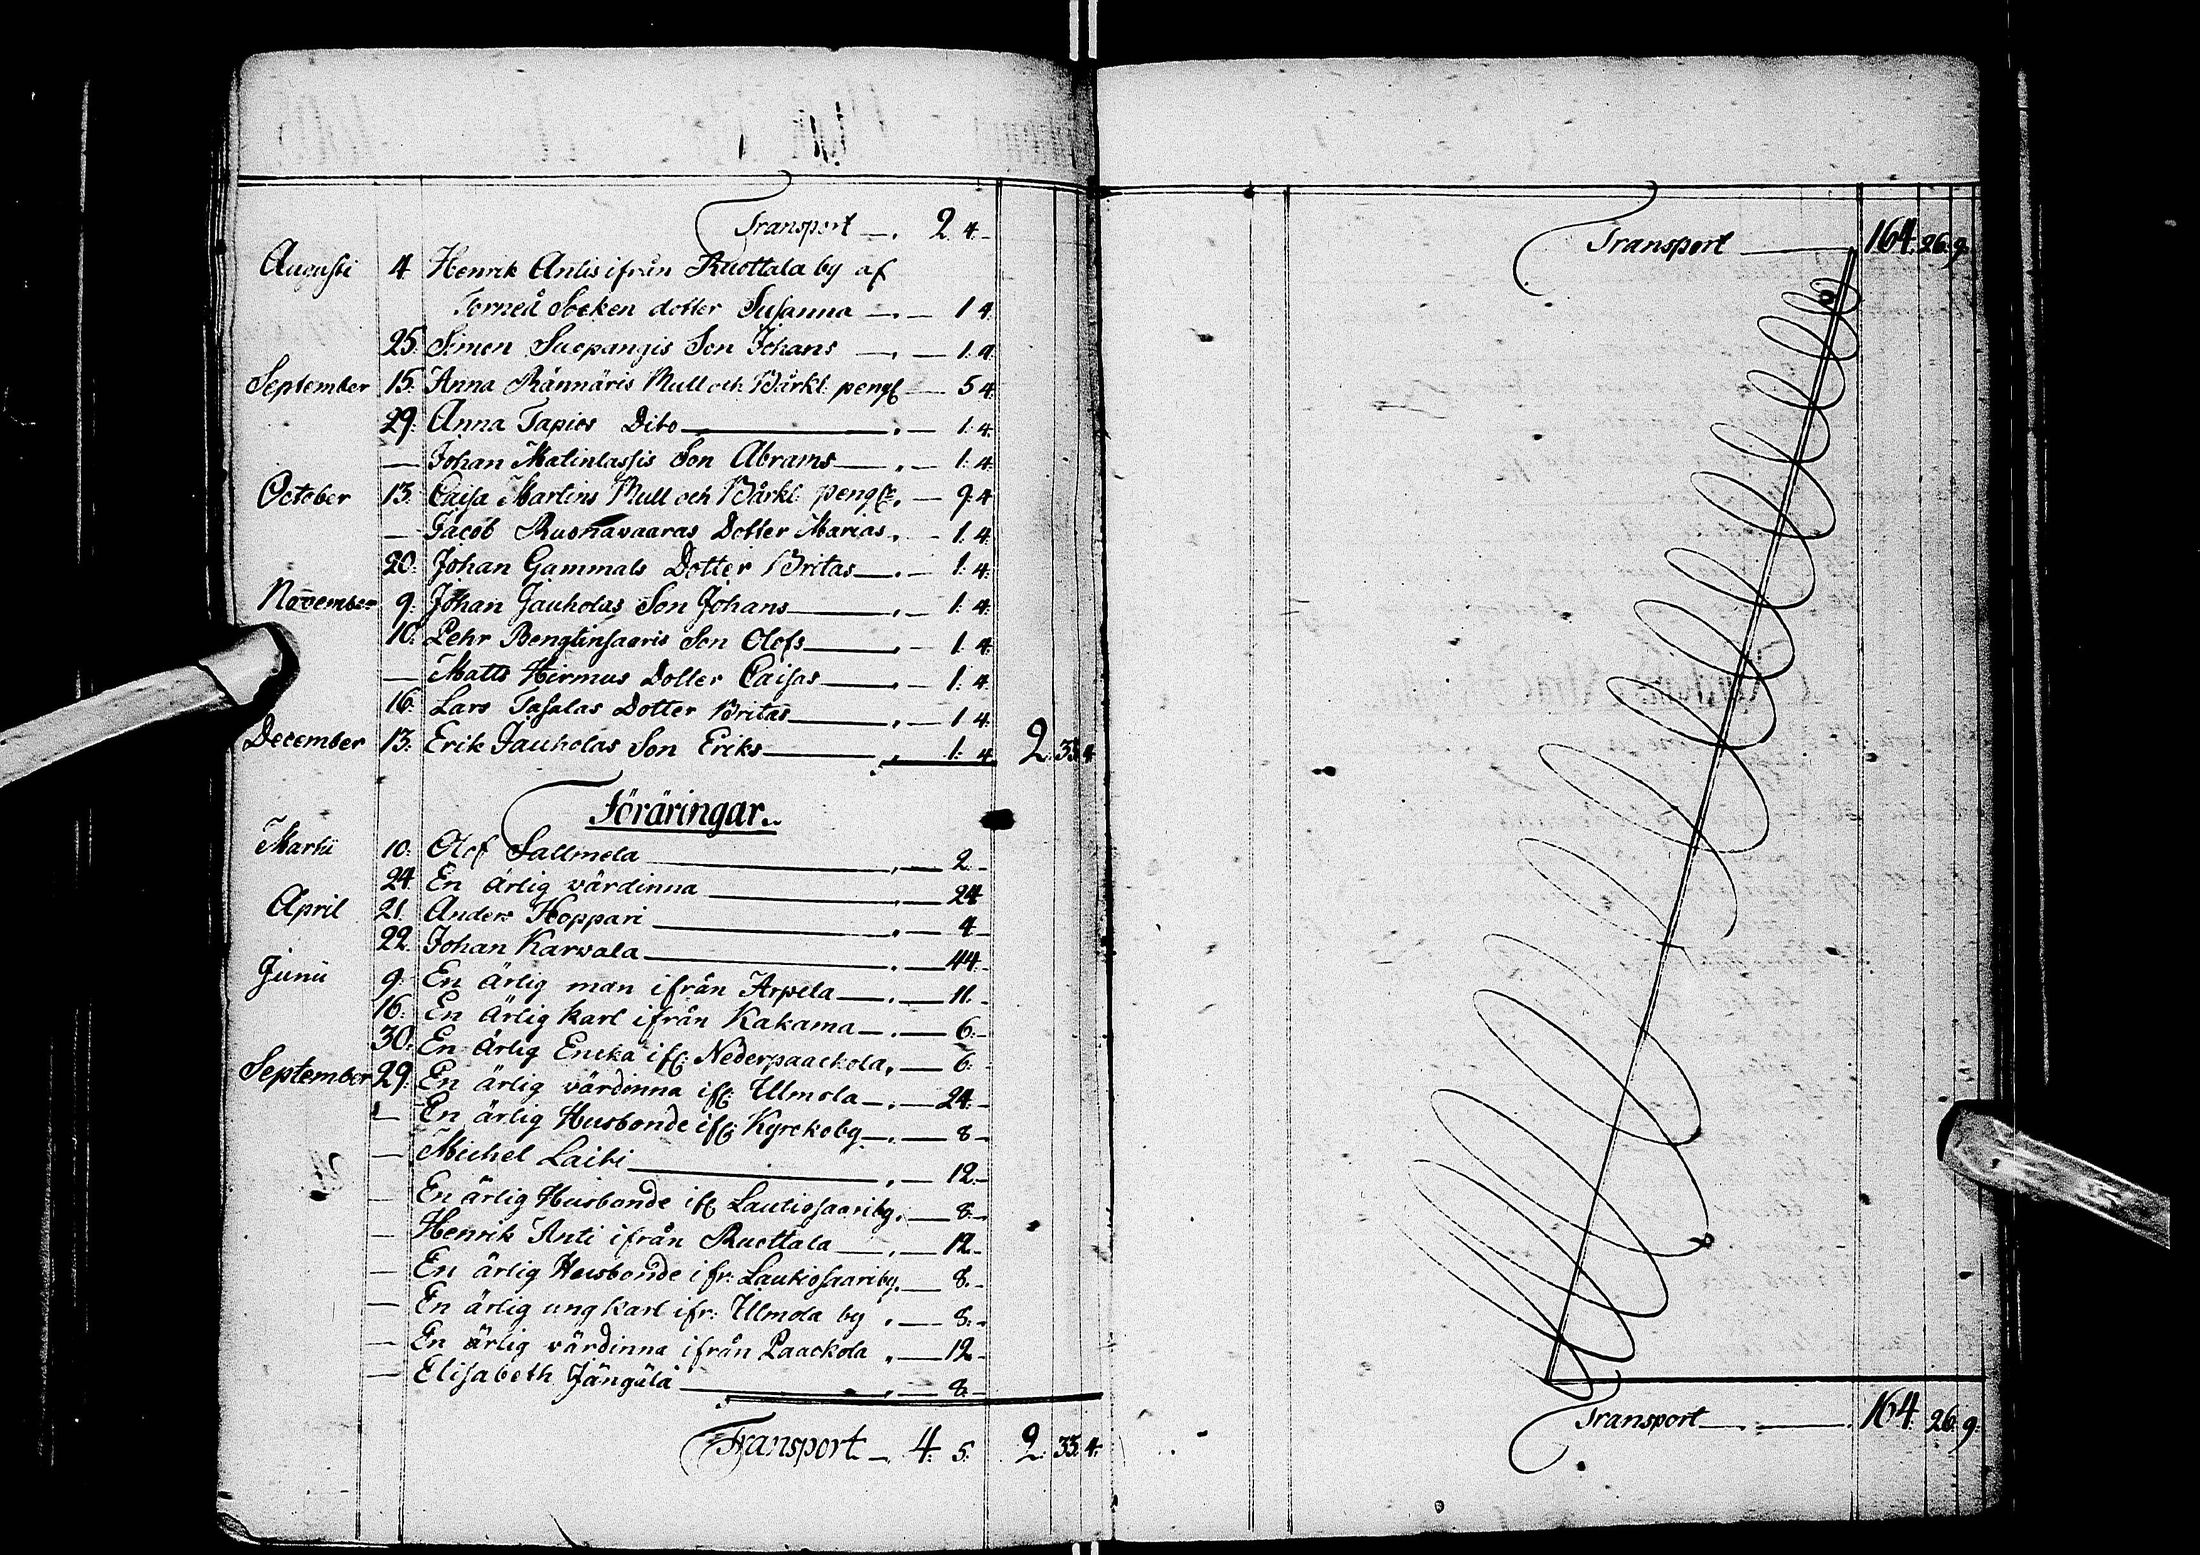 Transport —. 2. 4.-
Augusti 4 Henrik Antis ifrån Ruottala by af
Torneå Socken dotter Susanna —.— 1 4.
25. Simon Suepangis Son Johans —.— 1. 4.
September 15. Anna Rännäris Mull och Bårkl. peng —. 5 4.
29. Anna Tapios Dito —.— 1. 4.
— Johan Matinlassis Son Abrams —.— 1. 4.
October 13. Caisa Martins Mull och Bårkl. peng. — 9 4
— Jacob Ruonavaaras Dotter Marias. — 1. 4.
20. Johan Gammals Dotter Britas —.— 1. 4.
November 9. Johan Jauholas Son Johans —.— 1. 4.
10. Pehr Bengtinsaaris Son Olofs —.— 1. 4.
— Matts Hirmus Dotter Caisas —.— 1. 4.
16. Lars Tasalas Dotter Britas —.— 1 4.
December 13. Erik Jauholas Son Eriks —. 1. 4. 2. 33 4
Föräringar.
Martii 10. Olof Sallmela —.— 2.-
24. En ärlig värdinna —.— 24
April 21. Anders Hoppari —.— 4
22. Johan Karvala —.— 44.-
Junii 9. En ärlig man ifrån Arpela —.— 11.-
16. En ärlig karl ifrån Kakama —.— 6.-
30. En ärlig Encka if: Nederpaackola. — 6.-
September 29. En ärlig värdinna if: Ullmola —.— 24.-
— En ärlig Husbonde if: Kyrckoby —.— 8.-
— Michel Laiti —.— 12.-
— En ärlig Husbonde if: Lautiosaariby. — 8.-
— Henrik Anti ifrån Ruottala —.— 12.-
— En ärlig Husbonde ifr: Lautiosaariby. — 8.-
— En ärlig ungkarl ifr: Ullmola by . — 8.-
— En ärlig värdinna ifrån Paackola . — 12.-
— Elisabeth Jängälä —.— 8.-
Transport —. 4. 5. 2. 33. 4.
Transport — 164. 26. 9.
Transport — . 164. 26. 9.